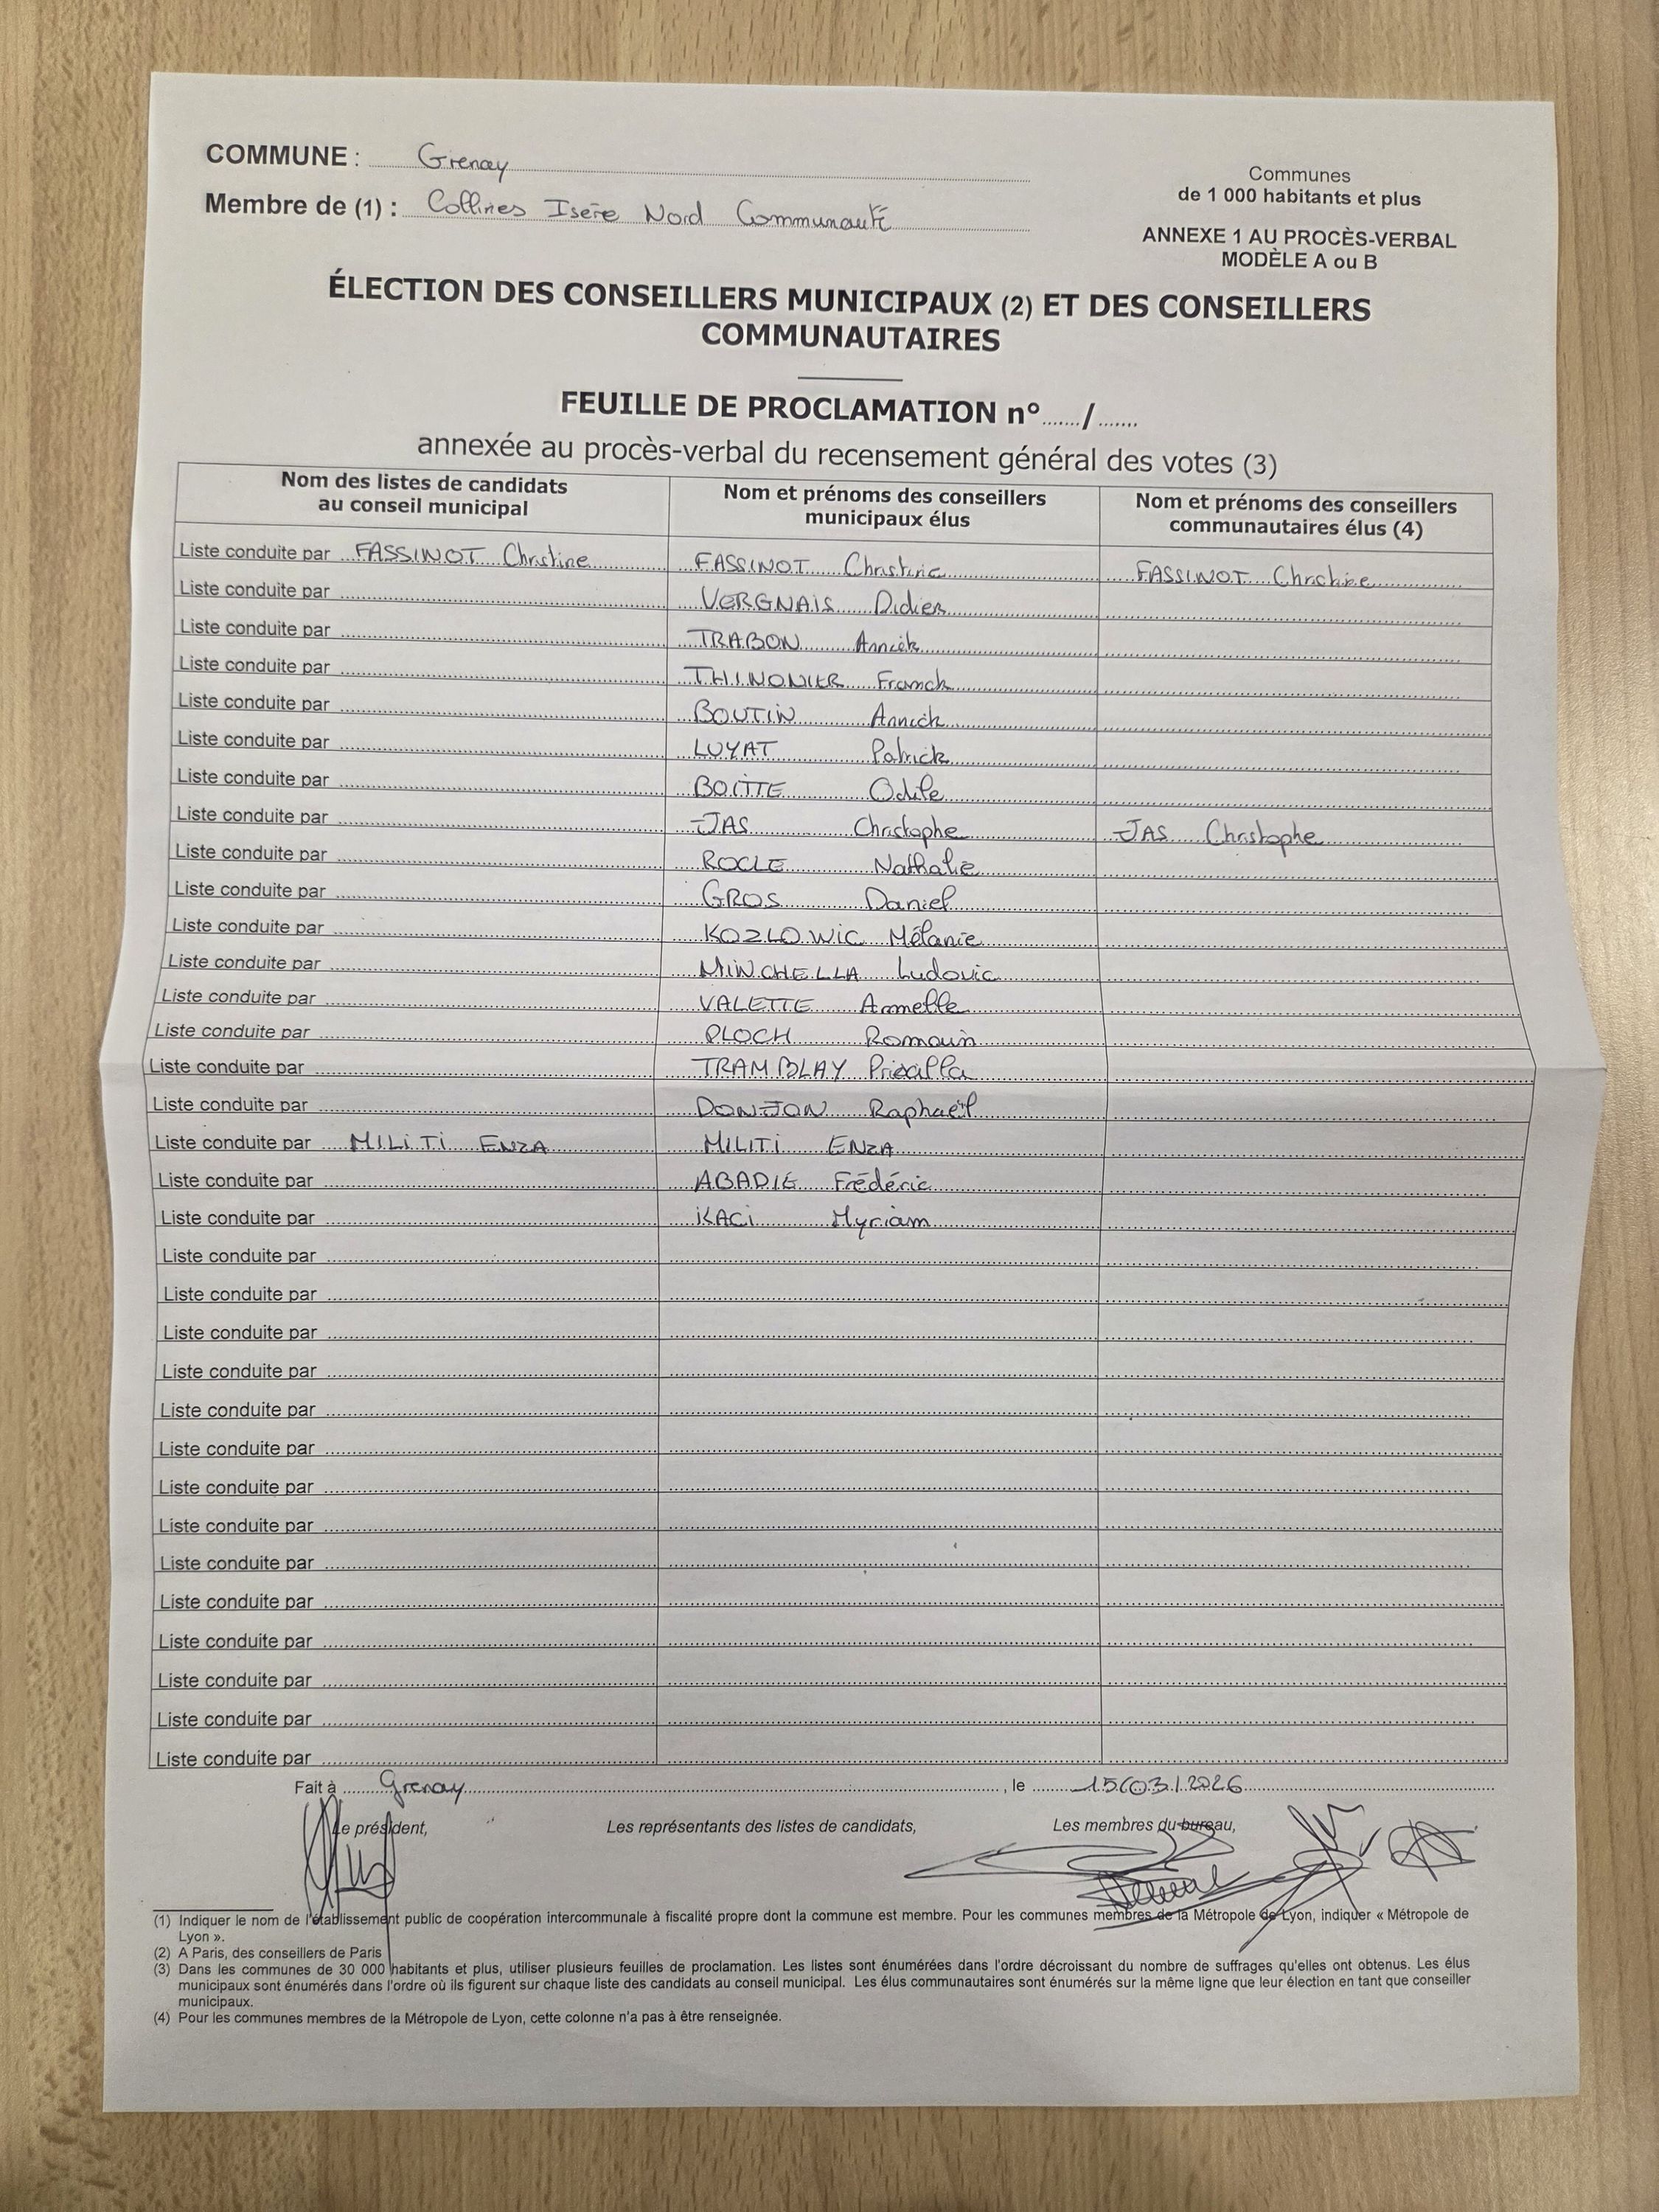 COMMUNE : Grenay
Membre de (1) : Collines Isère Nord Communauté
Communes
de 1 000 habitants et plus
ANNEXE 1 AU PROCÈS-VERBAL
MODÈLE A ou B
ÉLECTION DES CONSEILLERS MUNICIPAUX (2) ET DES CONSEILLERS
COMMUNAUTAIRES
FEUILLE DE PROCLAMATION n°....../.......
annexée au procès-verbal du recensement général des votes (3)
Nom des listes de candidats au conseil municipal | Nom et prénoms des conseillers municipaux élus | Nom et prénoms des conseillers communautaires élus (4)
Liste conduite par FASSINOT Christine | FASSINOT Christine | FASSINOT Christine
Liste conduite par | VERGNAIS Didier
Liste conduite par | TRABON Annick
Liste conduite par | THINONIER Franck
Liste conduite par | BOUTIN Annick
Liste conduite par | LUYAT Patrick
Liste conduite par | BOITTE Odile
Liste conduite par | JAS Christophe | JAS Christophe
Liste conduite par | ROCLE Nathalie
Liste conduite par | GROS Daniel
Liste conduite par | KOZLOWIC Mélanie
Liste conduite par | MINCHELLA Ludovic
Liste conduite par | VALETTE Armelle
Liste conduite par | PLOCH Romain
Liste conduite par | TRAMBLAY Priscilla
Liste conduite par | DONJON Raphaël
Liste conduite par MILITI ENZA | MILITI ENZA
Liste conduite par | ABADIE Frédéric
Liste conduite par | KACI Myriam
Liste conduite par
Liste conduite par
Liste conduite par
Liste conduite par
Liste conduite par
Liste conduite par
Liste conduite par
Liste conduite par
Liste conduite par
Liste conduite par
Liste conduite par
Liste conduite par
Liste conduite par
Liste conduite par
Fait à Grenay, le 15/03/2026
Le président, Les représentants des listes de candidats, Les membres du bureau,
(1) Indiquer le nom de l'établissement public de coopération intercommunale à fiscalité propre dont la commune est membre. Pour les communes membres de la Métropole de Lyon, indiquer « Métropole de
Lyon ».
(2) A Paris, des conseillers de Paris
(3) Dans les communes de 30 000 habitants et plus, utiliser plusieurs feuilles de proclamation. Les listes sont énumérées dans l'ordre décroissant du nombre de suffrages qu'elles ont obtenus. Les élus
municipaux sont énumérés dans l'ordre où ils figurent sur chaque liste des candidats au conseil municipal. Les élus communautaires sont énumérés sur la même ligne que leur élection en tant que conseiller
municipaux.
(4) Pour les communes membres de la Métropole de Lyon, cette colonne n'a pas à être renseignée.